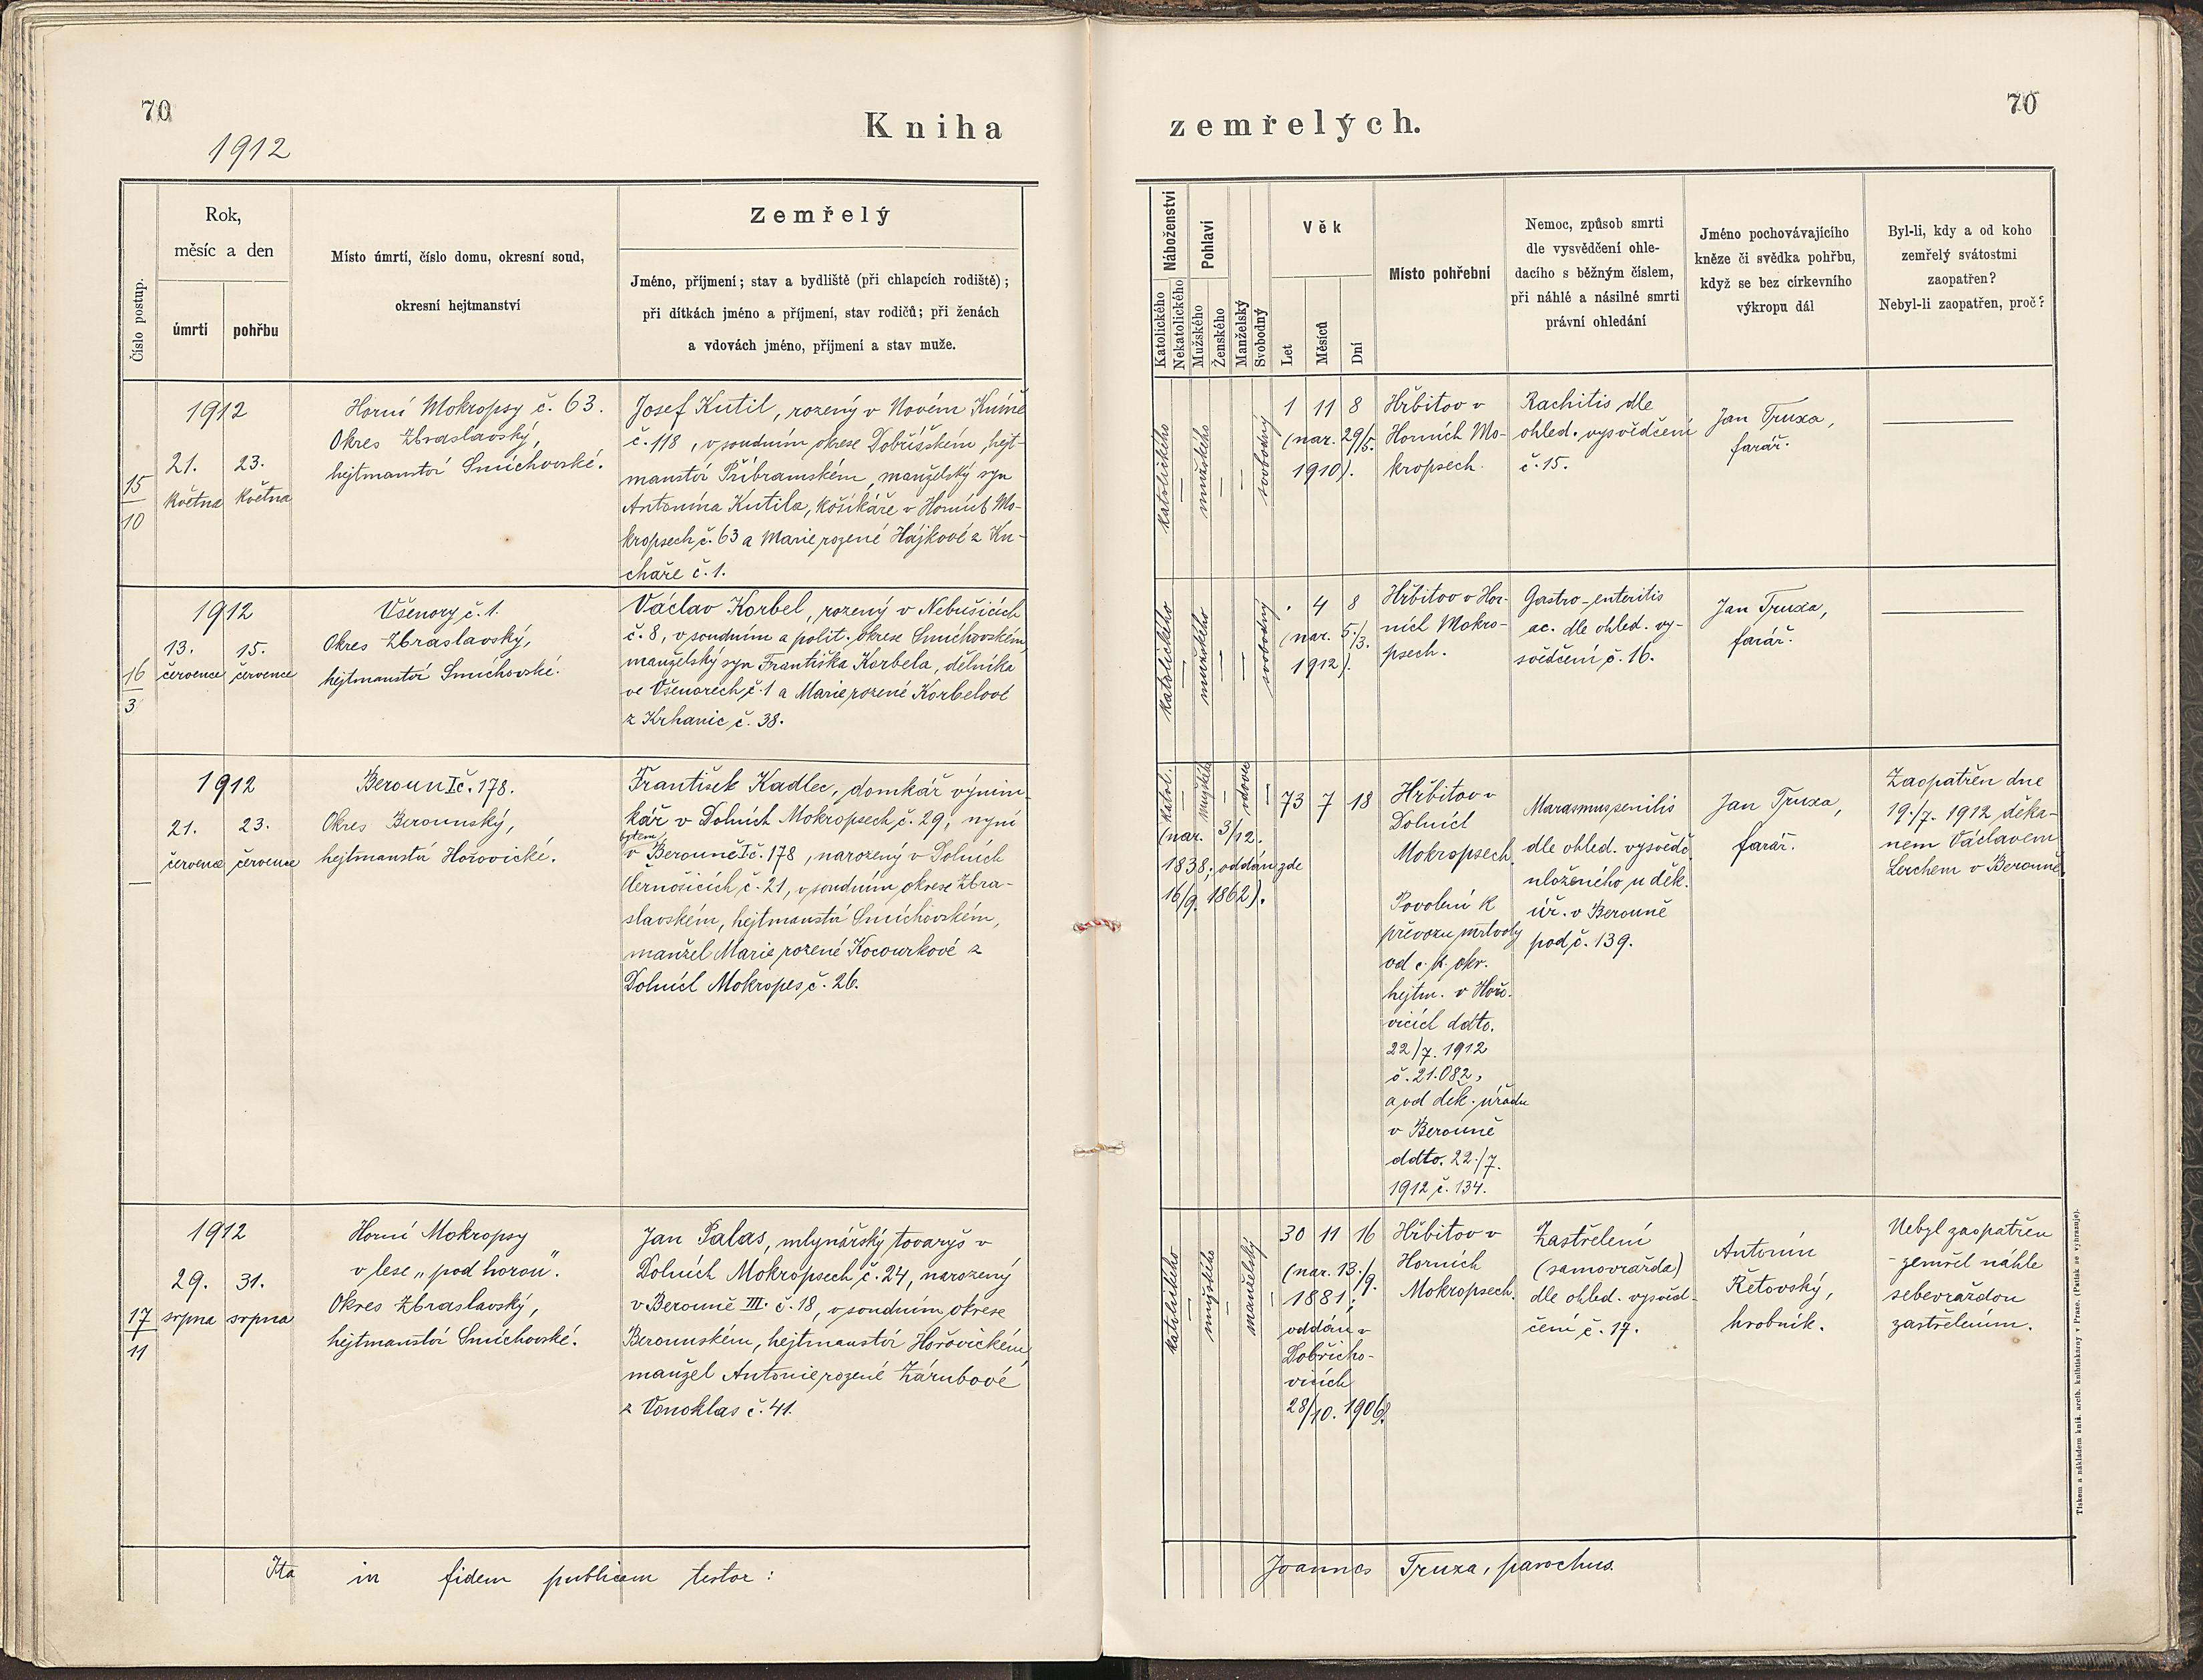 70
1912
Kniha
Číslo postup.
Rok,
měsíc a den
úmrtí
pohřbu
Místo úmrtí, číslo domu, okresní soud,
okresní hejtmanství
Zemřelý
Jméno, příjmení; stav a bydliště (při chlapcích rodiště);
při dítkách jméno a příjmení, stav rodičů; při ženách
a vdovách jméno, příjmení a stav muže.
15
10
1912
21.
května
23.
května
Horní Mokropsy č. 63.
Okres Zbraslavský,
hejtmanství Smíchovské.
Josef Kutil, rozený v Novém Kníně
č. 118, v soudním okrese Dobříšském, hejt-
manství Příbramském, manželský syn
Antonína Kutila, košíkáře v Horních Mo-
kropsech č. 63 a Marie rozené Hájkové z Ku-
chaře č. 1.
16
3
1912
13.
července
15.
července
Všenory č. 1.
Okres Zbraslavský,
hejtmanství Smíchovské.
Václav Korbel, rozený v Nebušicích
č. 8, v soudním a polit. okrese Smíchovském,
manželský syn Františka Korbela, dělníka
ve Všenorech č. 1 a Marie rozené Korbelové
z Krhanic č. 38.
—
1912
21.
července
23.
července
Beroun I č. 178.
Okres Berounský,
hejtmanství Hořovické.
František Kadlec, domkář výmin-
kář v Dolních Mokropsech č. 29, nyní
bytem
v Berouně I č. 178, narozený v Dolních
Černošicích č. 21, v soudním okrese Zbra-
slavském, hejtmanství Smíchovském,
manžel Marie rozené Kocourkové z
Dolních Mokropes č. 26.
17
11
1912
29.
srpna
31.
srpna
Horní Mokropsy
v lese „pod horou".
Okres Zbraslavský,
hejtmanství Smíchovské.
Jan Palas, mlynářský tovaryš v
Dolních Mokropsech č. 24, narozený
v Berouně III. č. 18, v soudním okrese
Berounském, hejtmanství Hořovickém
manžel Antonie rozené Zárubové
z Vonoklas č. 41.
Ita in fidem publicam testor:
70
zemřelých.
Náboženství
Katolického
Nekatolického
Pohlaví
Mužského
Ženského
Manželský
Svobodný
Věk
Let
Měsíců
Dní
Místo pohřební
Nemoc, způsob smrti
dle vysvědčení ohle-
dacího s běžným číslem,
při náhlé a násilné smrti
právní ohledání
Jméno pochovávajícího
kněze či svědka pohřbu,
když se bez církevního
výkropu dál
Byl-li, kdy a od koho
zemřelý svátostmi
zaopatřen?
Nebyl-li zaopatřen, proč?
katolického
—
mužského
—
—
svobodný
1 11 8
(nar. 29/5.
1910).
Hřbitov v
Horních Mo-
kropsech.
Rachitis dle
ohled. vysvědčení
č. 15.
Jan Truxa,
farář.
—
katolického
—
mužského
—
—
svobodný
. 4 8
(nar. 5./3.
1912).
Hřbitov v Hor-
ních Mokro-
psech.
Gastro-enteritis
ac. dle ohled. vy-
svědčení č. 16.
Jan Truxa,
farář.
—
katol.
—
mužského
—
vdovec
—
73 7 18
(nar. 3/12.
1838; oddán zde
16/9. 1862).
Hřbitov v
Dolních
Mokropsech.
Povolení k
převozu mrtvoly
od c. k. okr.
hejtm. v Hořo-
vicích ddto.
22/7. 1912
č. 21.082,
a od děk. úřadu
v Berouně
ddto. 22./7.
1912 č. 134.
Marasmus senilis
dle ohled. vysvědč.
uloženého u děk.
úř. v Berouně
pod č. 139.
Jan Truxa,
farář.
Zaopatřen dne
19./7. 1912 děka-
nem Václavem
Lerchem v Berouně.
katolického
—
mužského
—
manželský
—
30 11 16
(nar. 13./9.
1881;
oddán v
Dobřicho-
vicích
28/10. 1906).
Hřbitov v
Horních
Mokropsech.
Zastřelení
(samovražda)
dle ohled. vysvěd-
čení č. 17.
Antonín
Řetovský,
hrobník.
Nebyl zaopatřen
- zemřel náhle
sebevraždou
zastřelením.
Joannes Truxa, parochus.
Tiskem a nákladem kníž. arcib. knihtiskárny v Praze. (Patisk se vyhrazuje).